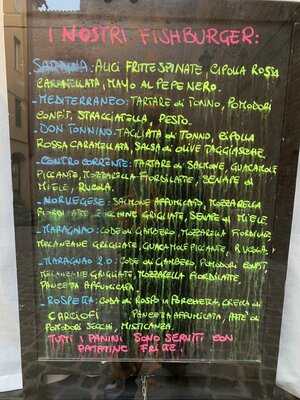 I NOSTRI FISHBURGER:
SABAUDA: ALICI FRITTE SPINATE, CIPOLLA ROSSA
CARAMELLATA, MAYO AL PEPE NERO.
-MEDITERRANEO: TARTARE DI TONNO, POMODORI
CONFIT, STRACCIATELLA, PESTO.
-DON TONNINO: TAGLIATA DI TONNO, CIPOLLA
ROSSA CARAMELLATA, SALSA DI OLIVE TAGGIASCHE.
-CONTROCORRENTE: TARTARE DI SALMONE, GUACAMOLE
PICCANTE, MOZZARELLA FIORDILATTE, SENAPE DI
MIELE, RUCOLA.
-NORVEGESE: SALMONE AFFUMICATO, MOZZARELLA
FIORDILATTE ZUCCHINE GRIGLIATE, SENAPE DI MIELE
-MARAGNAO: CODE DI GAMBERO, MOZZARELLA FIORDILATTE
MELANZANE GRIGLIATE, GUACAMOLE PICCANTE, RUCOLA.
-MARAGNAO 2.0: CODE DI GAMBERO, POMODORI CONFIT,
MELANZANE GRIGLIATE, MOZZARELLA FIORDILATTE,
PANCETTA AFFUMICATA.
-ROSPETTA: CODA DI ROSPO IN PORCHETTA, CREMA DI
CARCIOFI PANCETTA AFFUMICATA, PATÈ DI
POMODORI SECCHI, MISTICANZA.
TUTTI I PANINI SONO SERVITI CON
PATATINE FRITTE.